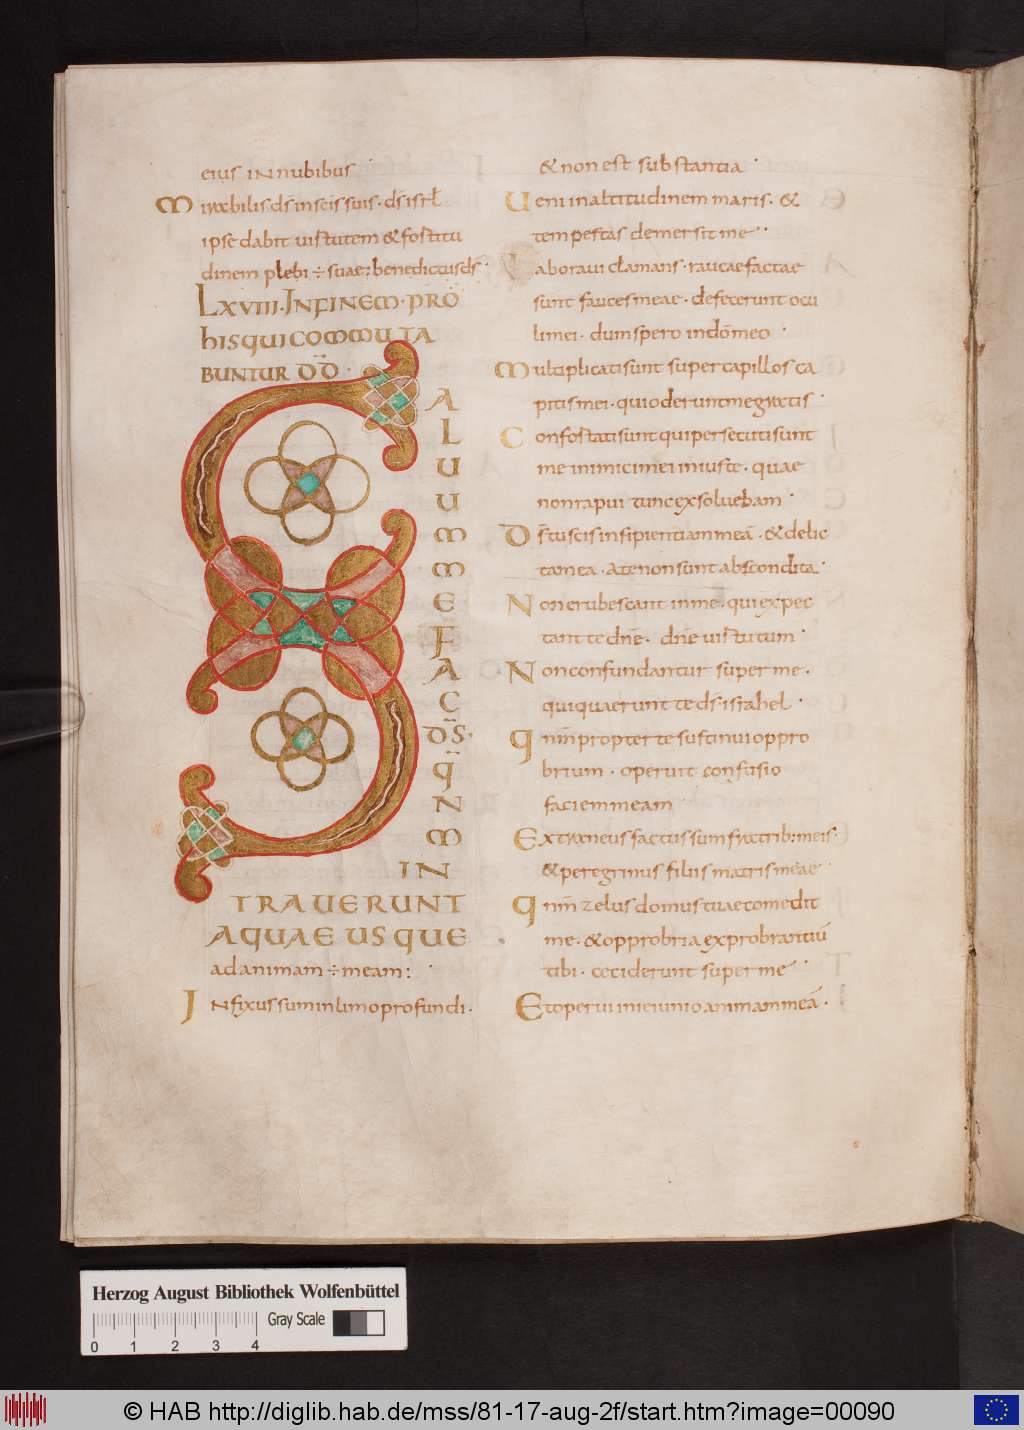 eius in nubibus
Mirabilis ds̄ in scīs suis · ds̄ isrł
ipse dabit uirtutem & fortitu
dinem plebi ÷ suae: benedictus ds̄
LXVIII · IN FINEM · PRO
HIS QUI COMMUTA
BUNTUR DD
S
A
L
U
U
M
M
E
F
A
C
D̄S
Q̄
N
M
IN
TRAUERUNT
AQUAE USQUE
ad animam ÷ meam:
Infixus sum in limo profundi ·
& non est substantia ·
Ueni in altitudinem maris · &
tempestas demersit me ·
Laboraui clamans · raucae factae
sunt fauces meae · defecerunt ocu
li mei · dum spero in dōm eo ·
Multiplicati sunt super capillos ca
pitis mei · qui oderunt me gratis ·
Confortati sunt qui persecuti sunt
me inimici mei iniuste · quae
non rapui tunc exsoluebam ·
Ds̄ tu scis insipientiam meā · & delic
ta mea · a te non sunt abscondita ·
Non erubescant in me · qui expec
tant te dnē · dnē uirtutum ·
Non confundantur super me ·
qui quaerunt te ds̄ israhel ·
Qnm̄ propter te sustinui oppro
brium · operuit confusio
faciem meam
Extraneus factus sum fratrib: meis ·
& peregrinus filiis matris meae ·
Qnm̄ zelus domus tuae comedit
me · & opprobria exprobrantiū
tibi · ceciderunt super me ·
Et operui in ieiunio animam meā ·
Herzog August Bibliothek Wolfenbüttel
Gray Scale
0 1 2 3 4
© HAB http://diglib.hab.de/mss/81-17-aug-2f/start.htm?image=00090